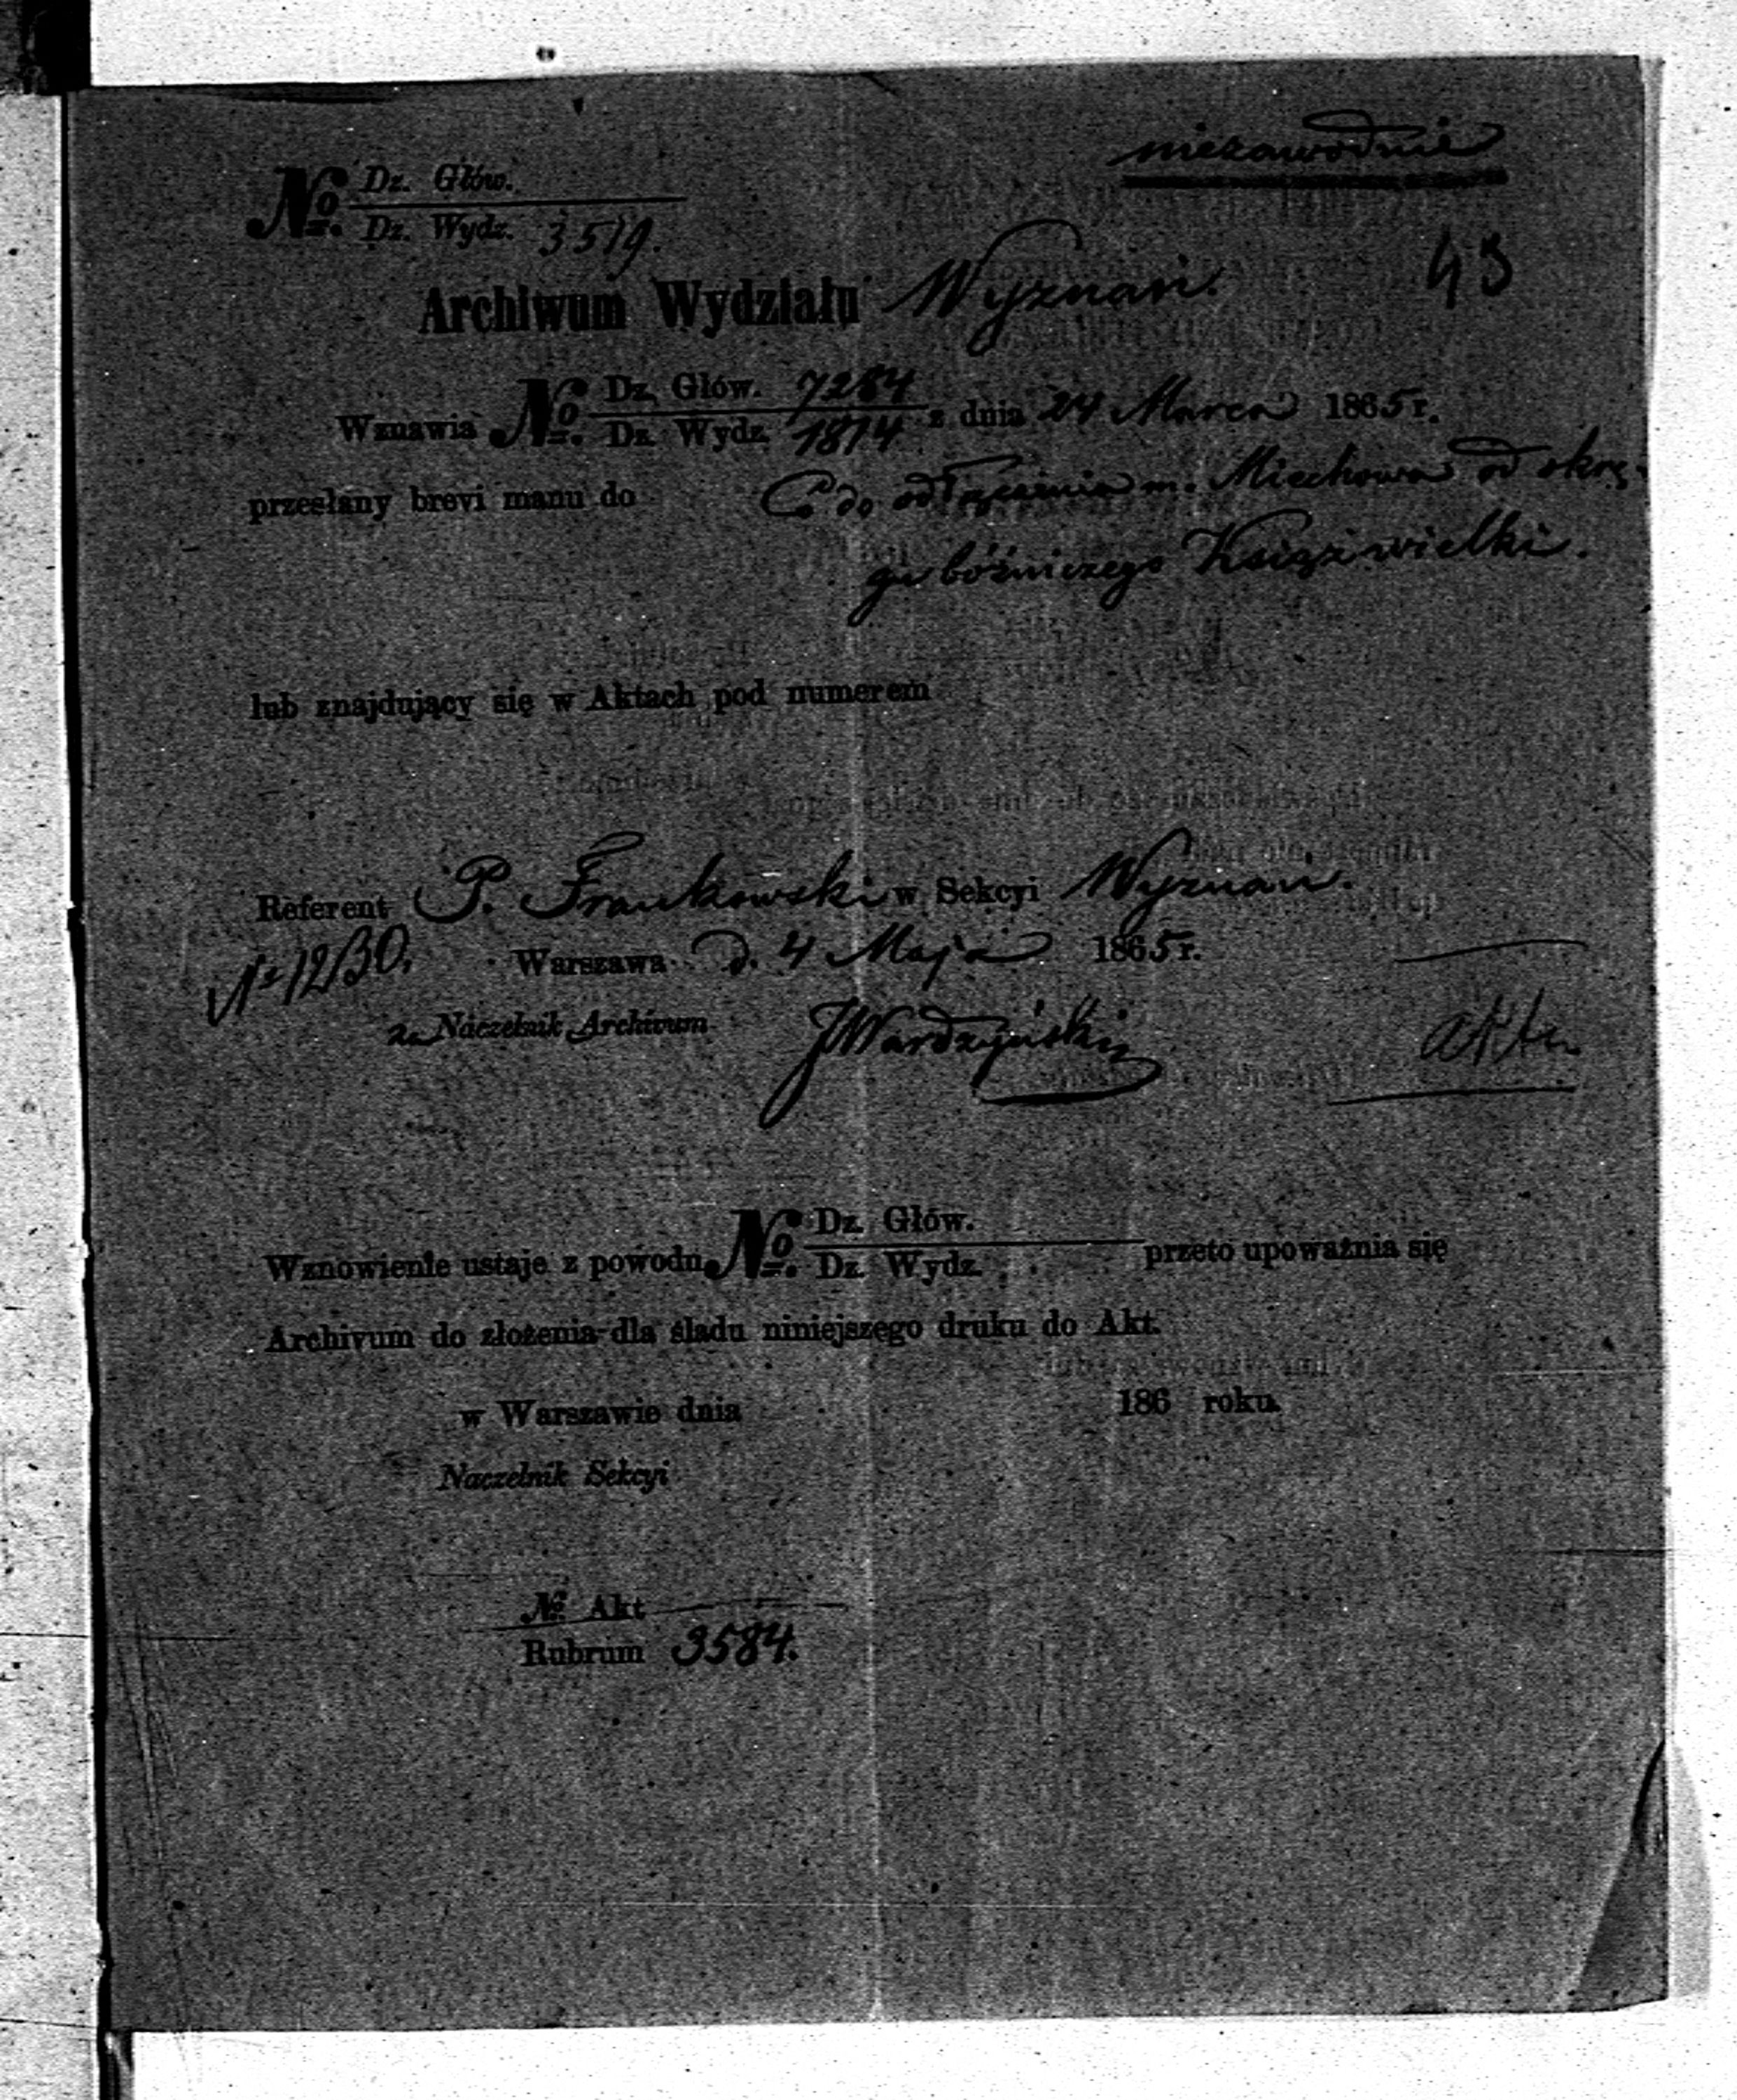 niezawodnie
№ Dz. Głów.
Dz. Wydz. 3519.
43
Archiwum Wydziału Wyznań.
Wznawia № Dz. Głów. 7284
Dz. Wydz. 1814 z dnia 24 Marca 1865 r.
przesłany brevi manu do Co do odłączenia m. Miechowa od okrę-
gu bóżniczego Książwielki.
lub znajdujący się w Aktach pod numerem
Referent P. Frankowski w Sekcyi Wyznań.
№ 12130. Warszawa d. 4 Maja 1865 r.
za Naczelnik Archivum JWardzyński
akta
Wznowienie ustaje z powodu № Dz. Głów.
Dz. Wydz. przeto upoważnia się
Archivum do złożenia dla śladu niniejszego druku do Akt.
w Warszawie dnia 186 roku.
Naczelnik Sekcyi
№ Akt
Rubrum 3584.